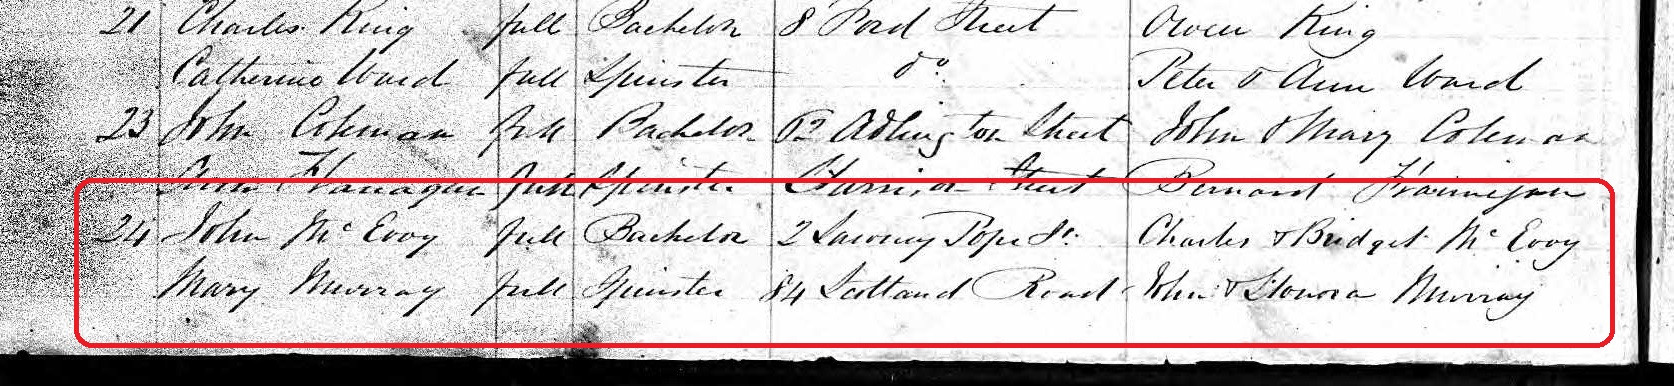 21 Charles King full Bachelor 8 Ford Street Owen King
Catherine Ward full Spinster do Peter & Ann Ward
23 John Coleman full Bachelor 62 Adlington Street John & Mary Coleman
Ann Flanagan full Spinster Harrison Street Bernard Flannigan
24 John McEvoy full Bachelor 2 Lawney Pope St. Charles & Bridget McEvoy
Mary Murray full Spinster 84 Scotland Road John & Honora Murray